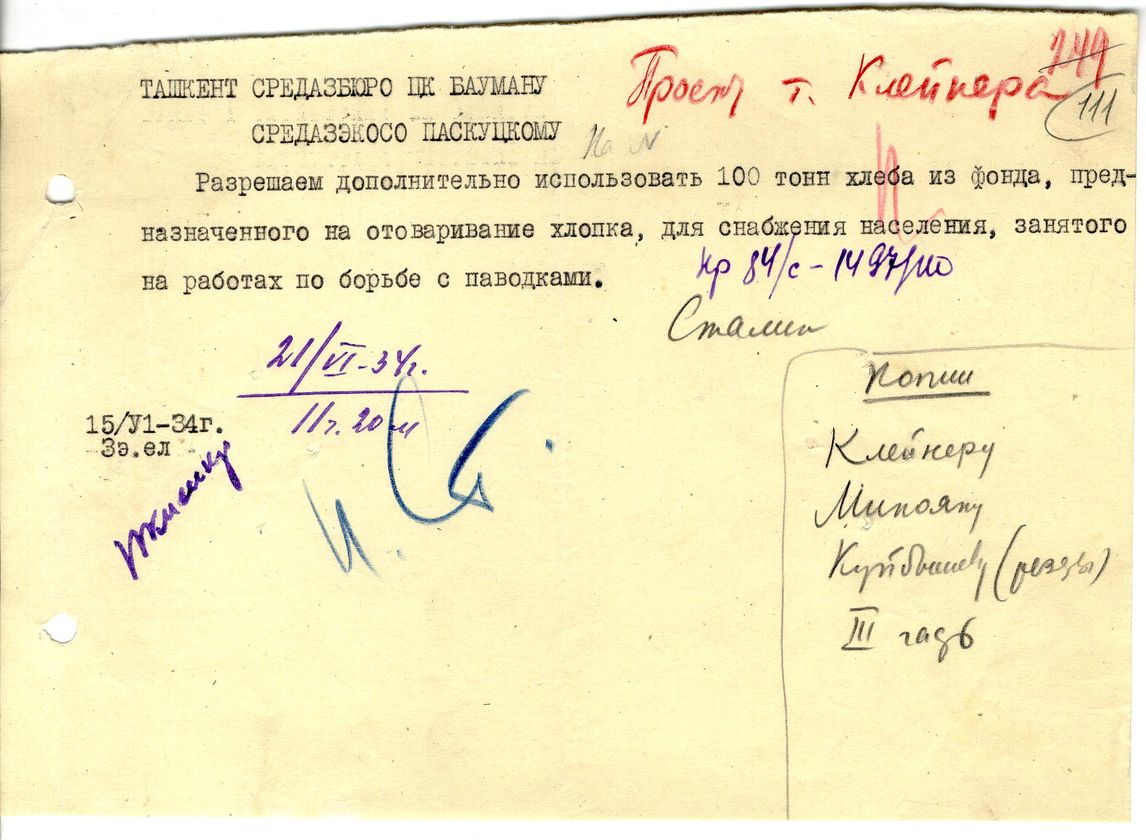 Проект т. Клейнера
149
111
ТАШКЕНТ СРЕДАЗБЮРО ЦК БАУМАНУ
СРЕДАЗЭКОСО ПАСКУЦКОМУ
Разрешаем дополнительно использовать 100 тонн хлеба из фонда, пред-
назначенного на отоваривание хлопка, для снабжения населения, занятого
на работах по борьбе с паводками.
Сталин
21/VI-34г.
11ч. 20м
15/У1-34г.
3э.ел
И. Ст.
Копии
Клейнеру
Микояну
Куйбышеву
III